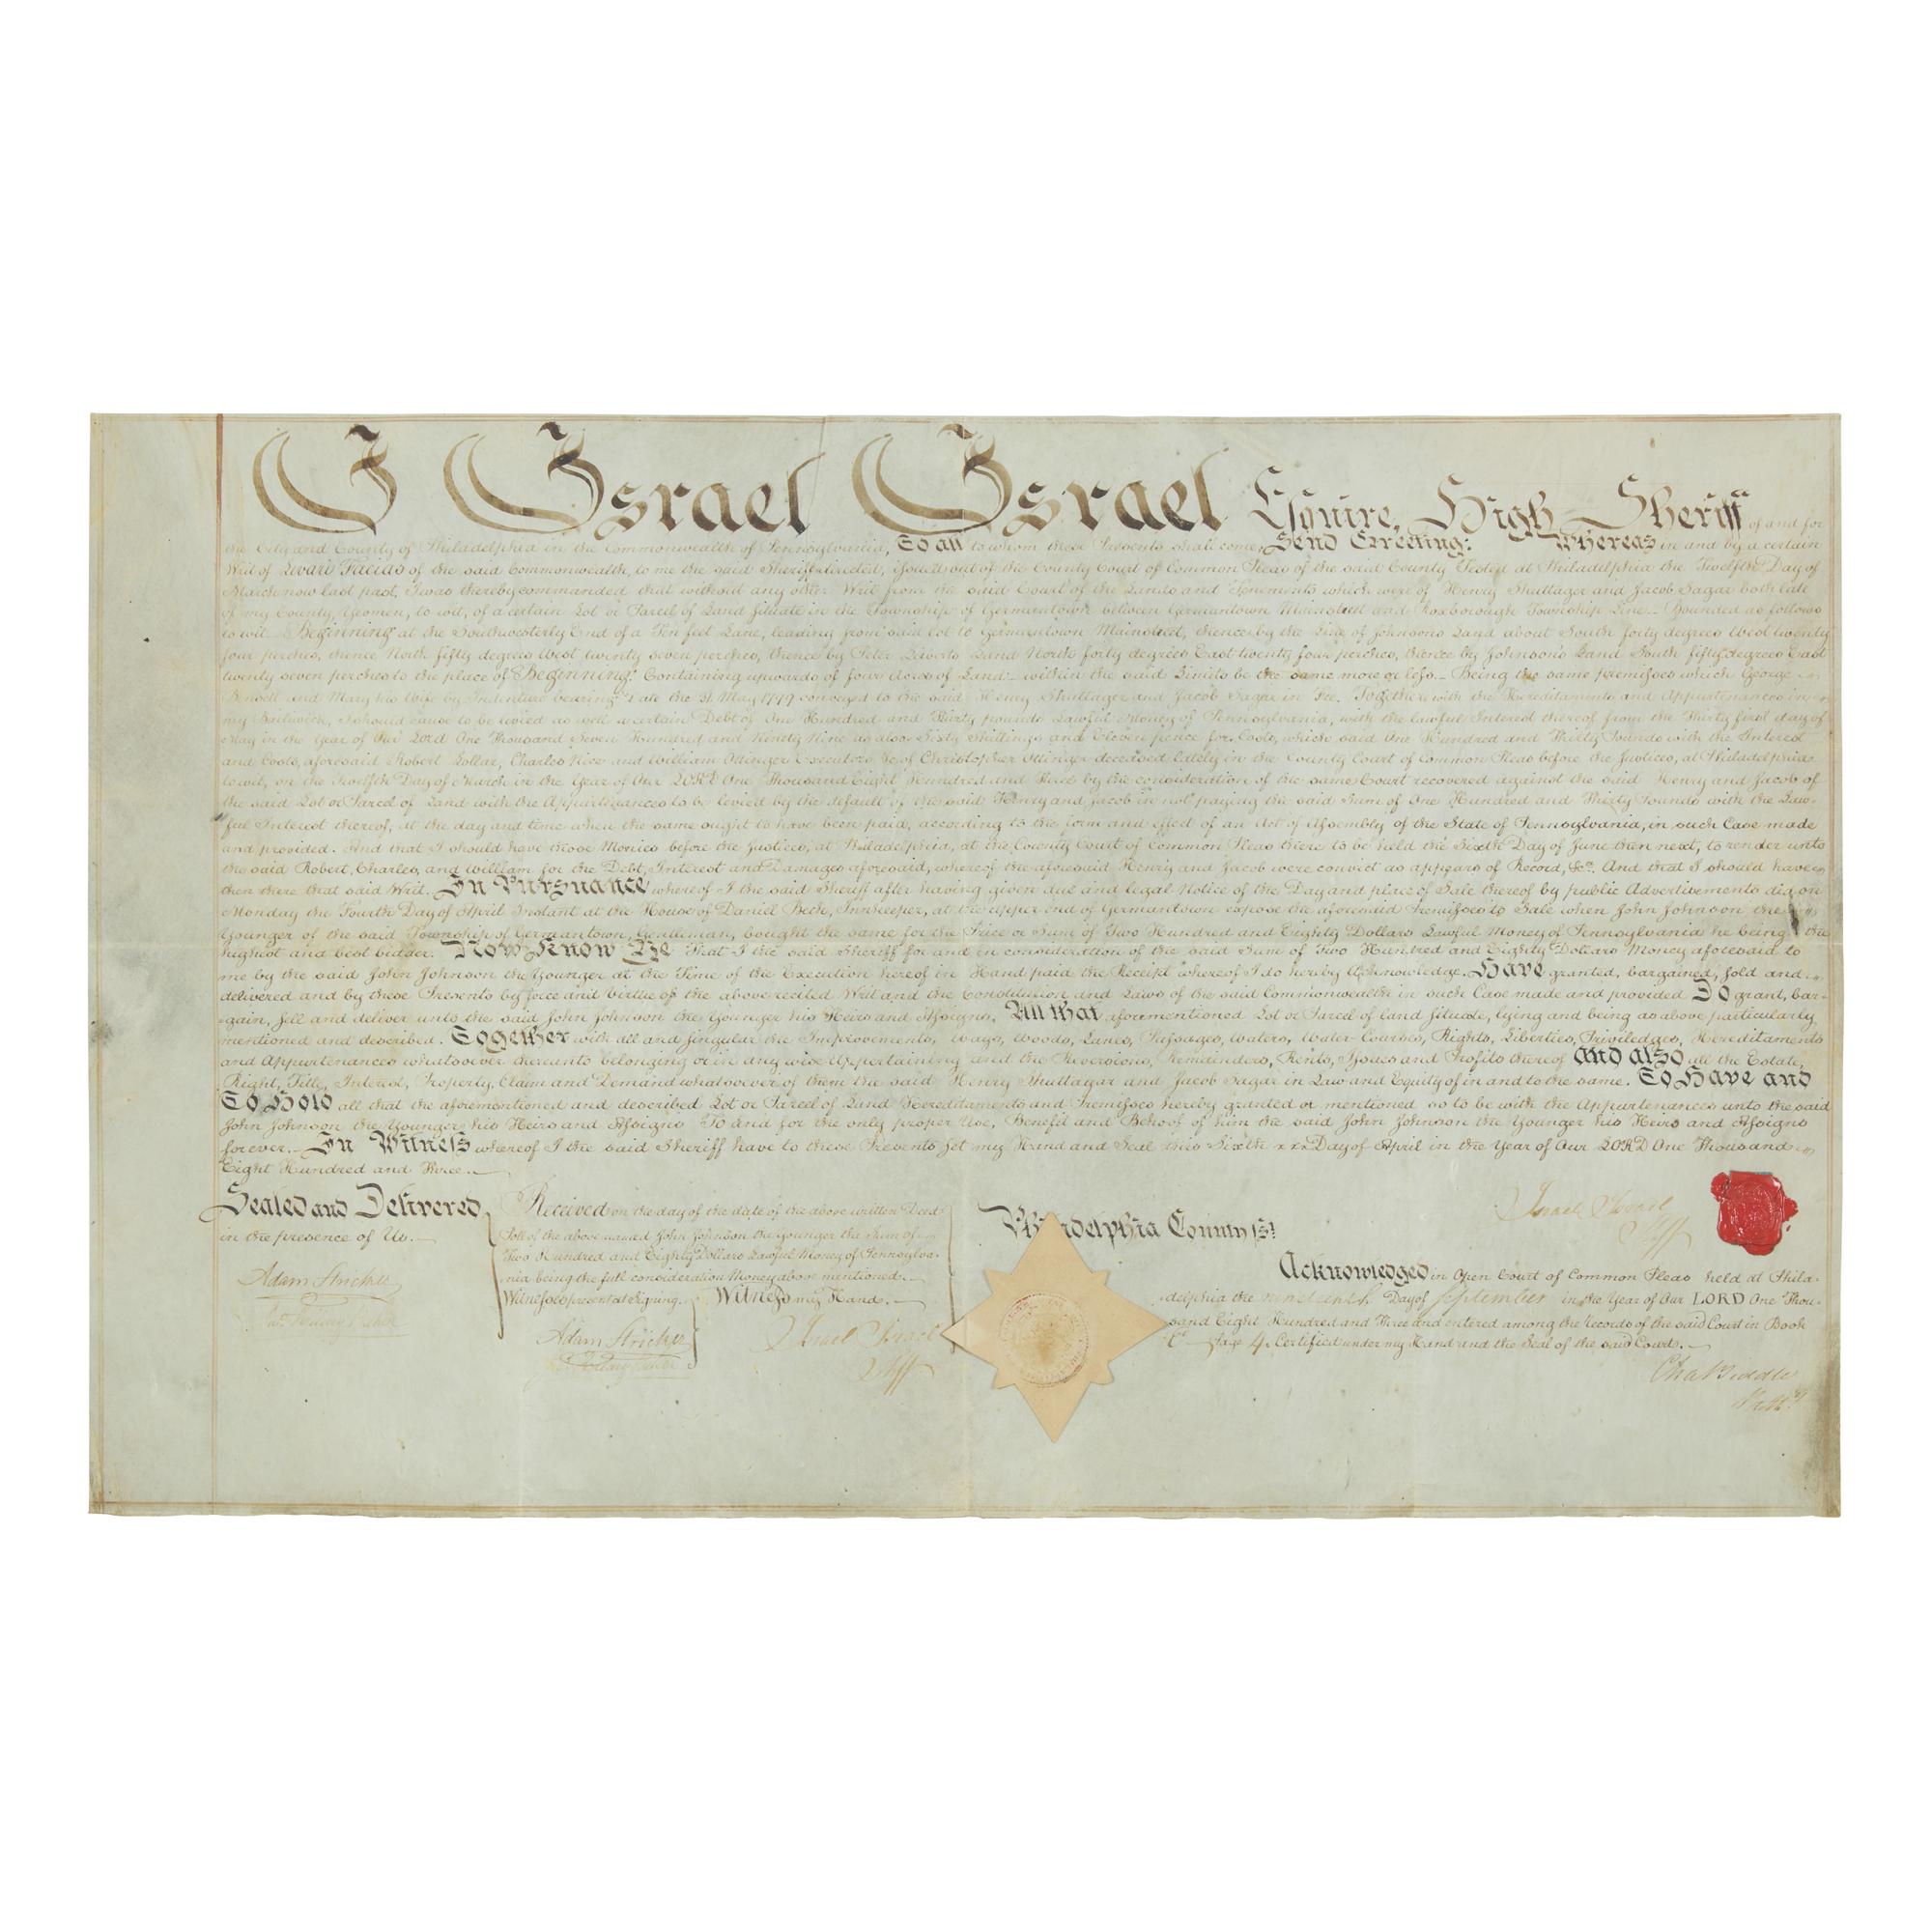 I Israel Israel Esquire, High Sheriff of and for
the City and County of Philadelphia in the Commonwealth of Pennsylvania, To all to whom these Presents shall come, Send Greeting: Whereas in and by a certain
Writ of Levari Facias of the said Commonwealth, to me the said Sheriff directed, issued out of the County Court of Common Pleas of the said County Tested at Philadelphia the Twelfth Day of
March now last past, I was thereby commanded that without any other Writ from the said Court of the Lands and Tenements which were of Henry Shuttager and Jacob Sagar both late
of my County, Yeomen, to wit, of a certain Lot or Parcel of Land situate in the Township of Germantown between Germantown Mainstreet and Roxborough Township Line. Bounded as follows
to wit. Beginning at the Southwesterly End of a Ten feet Lane, leading from said lot to Germantown Mainstreet, thence by the Line of Johnsons Land about South forty degrees West twenty
four perches, thence North fifty degrees West twenty seven perches, thence by Peter Liberts Land North forty degrees East twenty four perches, thence by Johnson's Land South fifty degrees East
twenty seven perches to the place of Beginning. Containing upwards of four Acres of Land within the said Limits be the same more or less. Being the same premisses which George
Bensell and Mary his Wife by Indenture bearing Date the 31 May 1799 conveyed to the said Henry Shuttager and Jacob Sagar in Fee. Together with the Hereditaments and Appurtenances in
my Bailiwick, I should cause to be levied as well a certain Debt of One Hundred and Thirty pounds Lawful Money of Pennsylvania, with the lawful Interest thereof from the Thirty first day of
May in the Year of Our Lord One Thousand Seven Hundred and Ninety Nine as also Sixty Shillings and Eleven pence for Costs, which said One Hundred and Thirty Pounds with the Interest
and Costs, aforesaid Robert Lollar, Charles Nice and William Ottinger Executors &c. of Christopher Ottinger deceased Lately in the County Court of Common Pleas before the Justices, at Philadelphia
to wit, on the Twelfth Day of March in the Year of Our LORD One Thousand Eight Hundred and Three by the consideration of the same Court recovered against the said Henry and Jacob of
the said Lot or Parcel of Land with the Appurtenances to be levied by the default of the said Henry and Jacob in not paying the said Sum of One Hundred and Thirty Pounds with the Law-
ful Interest thereof, at the day and time when the same ought to have been paid, according to the form and effect of an Act of Assembly of the State of Pennsylvania, in such Case made
and provided. And that I should have those Monies before the Justices, at Philadelphia, at the County Court of Common Pleas there to be held the Sixth Day of June then next, to render unto
the said Robert, Charles, and William for the Debt, Interest and Damages aforesaid, whereof the aforesaid Henry and Jacob were convict as appears of Record, &c. And that I should have
then there that said Writ. In Pursuance whereof I the said Sheriff after having given due and legal Notice of the Day and place of Sale thereof by public Advertisements did on
Monday the Fourth Day of April Instant at the House of Daniel Beck, Innkeeper, at the upper end of Germantown expose the aforesaid Premisses to Sale when John Johnson the
Younger of the said Township of Germantown, Gentleman, bought the same for the Price or Sum of Two Hundred and Eighty Dollars Lawful Money of Pennsylvania he being the
highest and best bidder. Now Know Ye That I the said Sheriff for and in consideration of the said Sum of Two Hundred and Eighty Dollars Money aforesaid to
me by the said John Johnson the Younger at the Time of the Execution hereof in Hand paid the Receipt whereof I do hereby Acknowledge. Have granted, bargained, sold and
delivered and by these Presents by force and virtue of the above recited Writ and the Constitution and Laws of the said Commonwealth in such Case made and provided Do grant, bar-
-gain, sell and deliver unto the said John Johnson the Younger his Heirs and Assigns, All that aforementioned Lot or Parcel of land situate, lying and being as above particularly
mentioned and described. Together with all and singular the Improvements, Ways, Woods, Lanes, Passages, Waters, Water-Courses, Rights, Liberties, Priviledges, Hereditaments
and Appurtenances whatsoever thereunto belonging or in any wise Appertaining and the Reversions, Remainders, Rents, Issues and Profits thereof and also all the Estate,
Right, Title, Interest, Property, Claim and Demand whatsoever of them the said Henry Shuttagar and Jacob Sagar in Law and Equity of in and to the same. To Have and
To Hold all that the aforementioned and described Lot or Parcel of Land Hereditaments and Premisses hereby granted or mentioned so to be with the Appurtenances unto the said
John Johnson the Younger his Heirs and Assigns To and for the only proper Use, Benefit and Behoof of him the said John Johnson the Younger his Heirs and Assigns
forever. In Witness whereof I the said Sheriff have to these Presents set my Hand and Seal this Sixth Day of April in the Year of Our LORD One Thousand
Eight Hundred and Three.
Sealed and Delivered
in the presence of Us.
Adam Stricker
Received on the day of the date of the above written Deed
Poll of the above named John Johnson the younger the Sum of
Two Hundred and Eighty Dollars Lawful Money of Pennsylva-
nia being the full consideration Money above mentioned.
Witnesses present at signing. Witness my Hand.
Adam Stricker
Israel Israel
Shff
Philadelphia County ss.
Israel Israel
Shff
Acknowledged in Open Court of Common Pleas held at Phila-
-delphia the nineteenth Day of September in the Year of Our LORD One Thou-
sand Eight Hundred and Three and entered among the Records of the said Court in Book
C Page 4. Certified under my Hand and the Seal of the said Court.
Cha Biddle